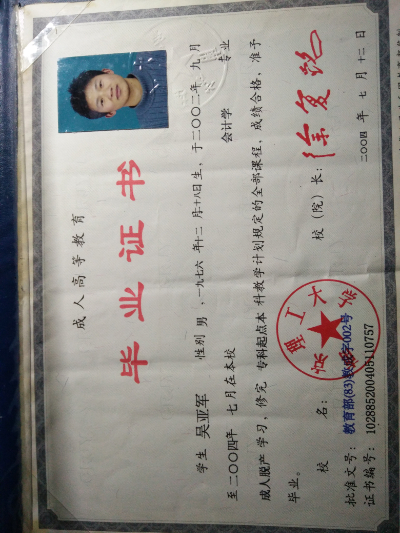 成人高等教育
毕业证书
学生 吴亚军 性别 男，一九七六年十二月十八日生，于二〇〇二年 九月
至二〇〇四年 七月在本校 会计学 专业
成人脱产学习，修完 专科起点本 科教学计划规定的全部课程，成绩合格，准予
毕业。
校 名： 校（院）长：徐复铭
理工大
批准文号：教育部(83)教成字002号
证书编号：102885200405110757 二〇〇四年 七月十二日